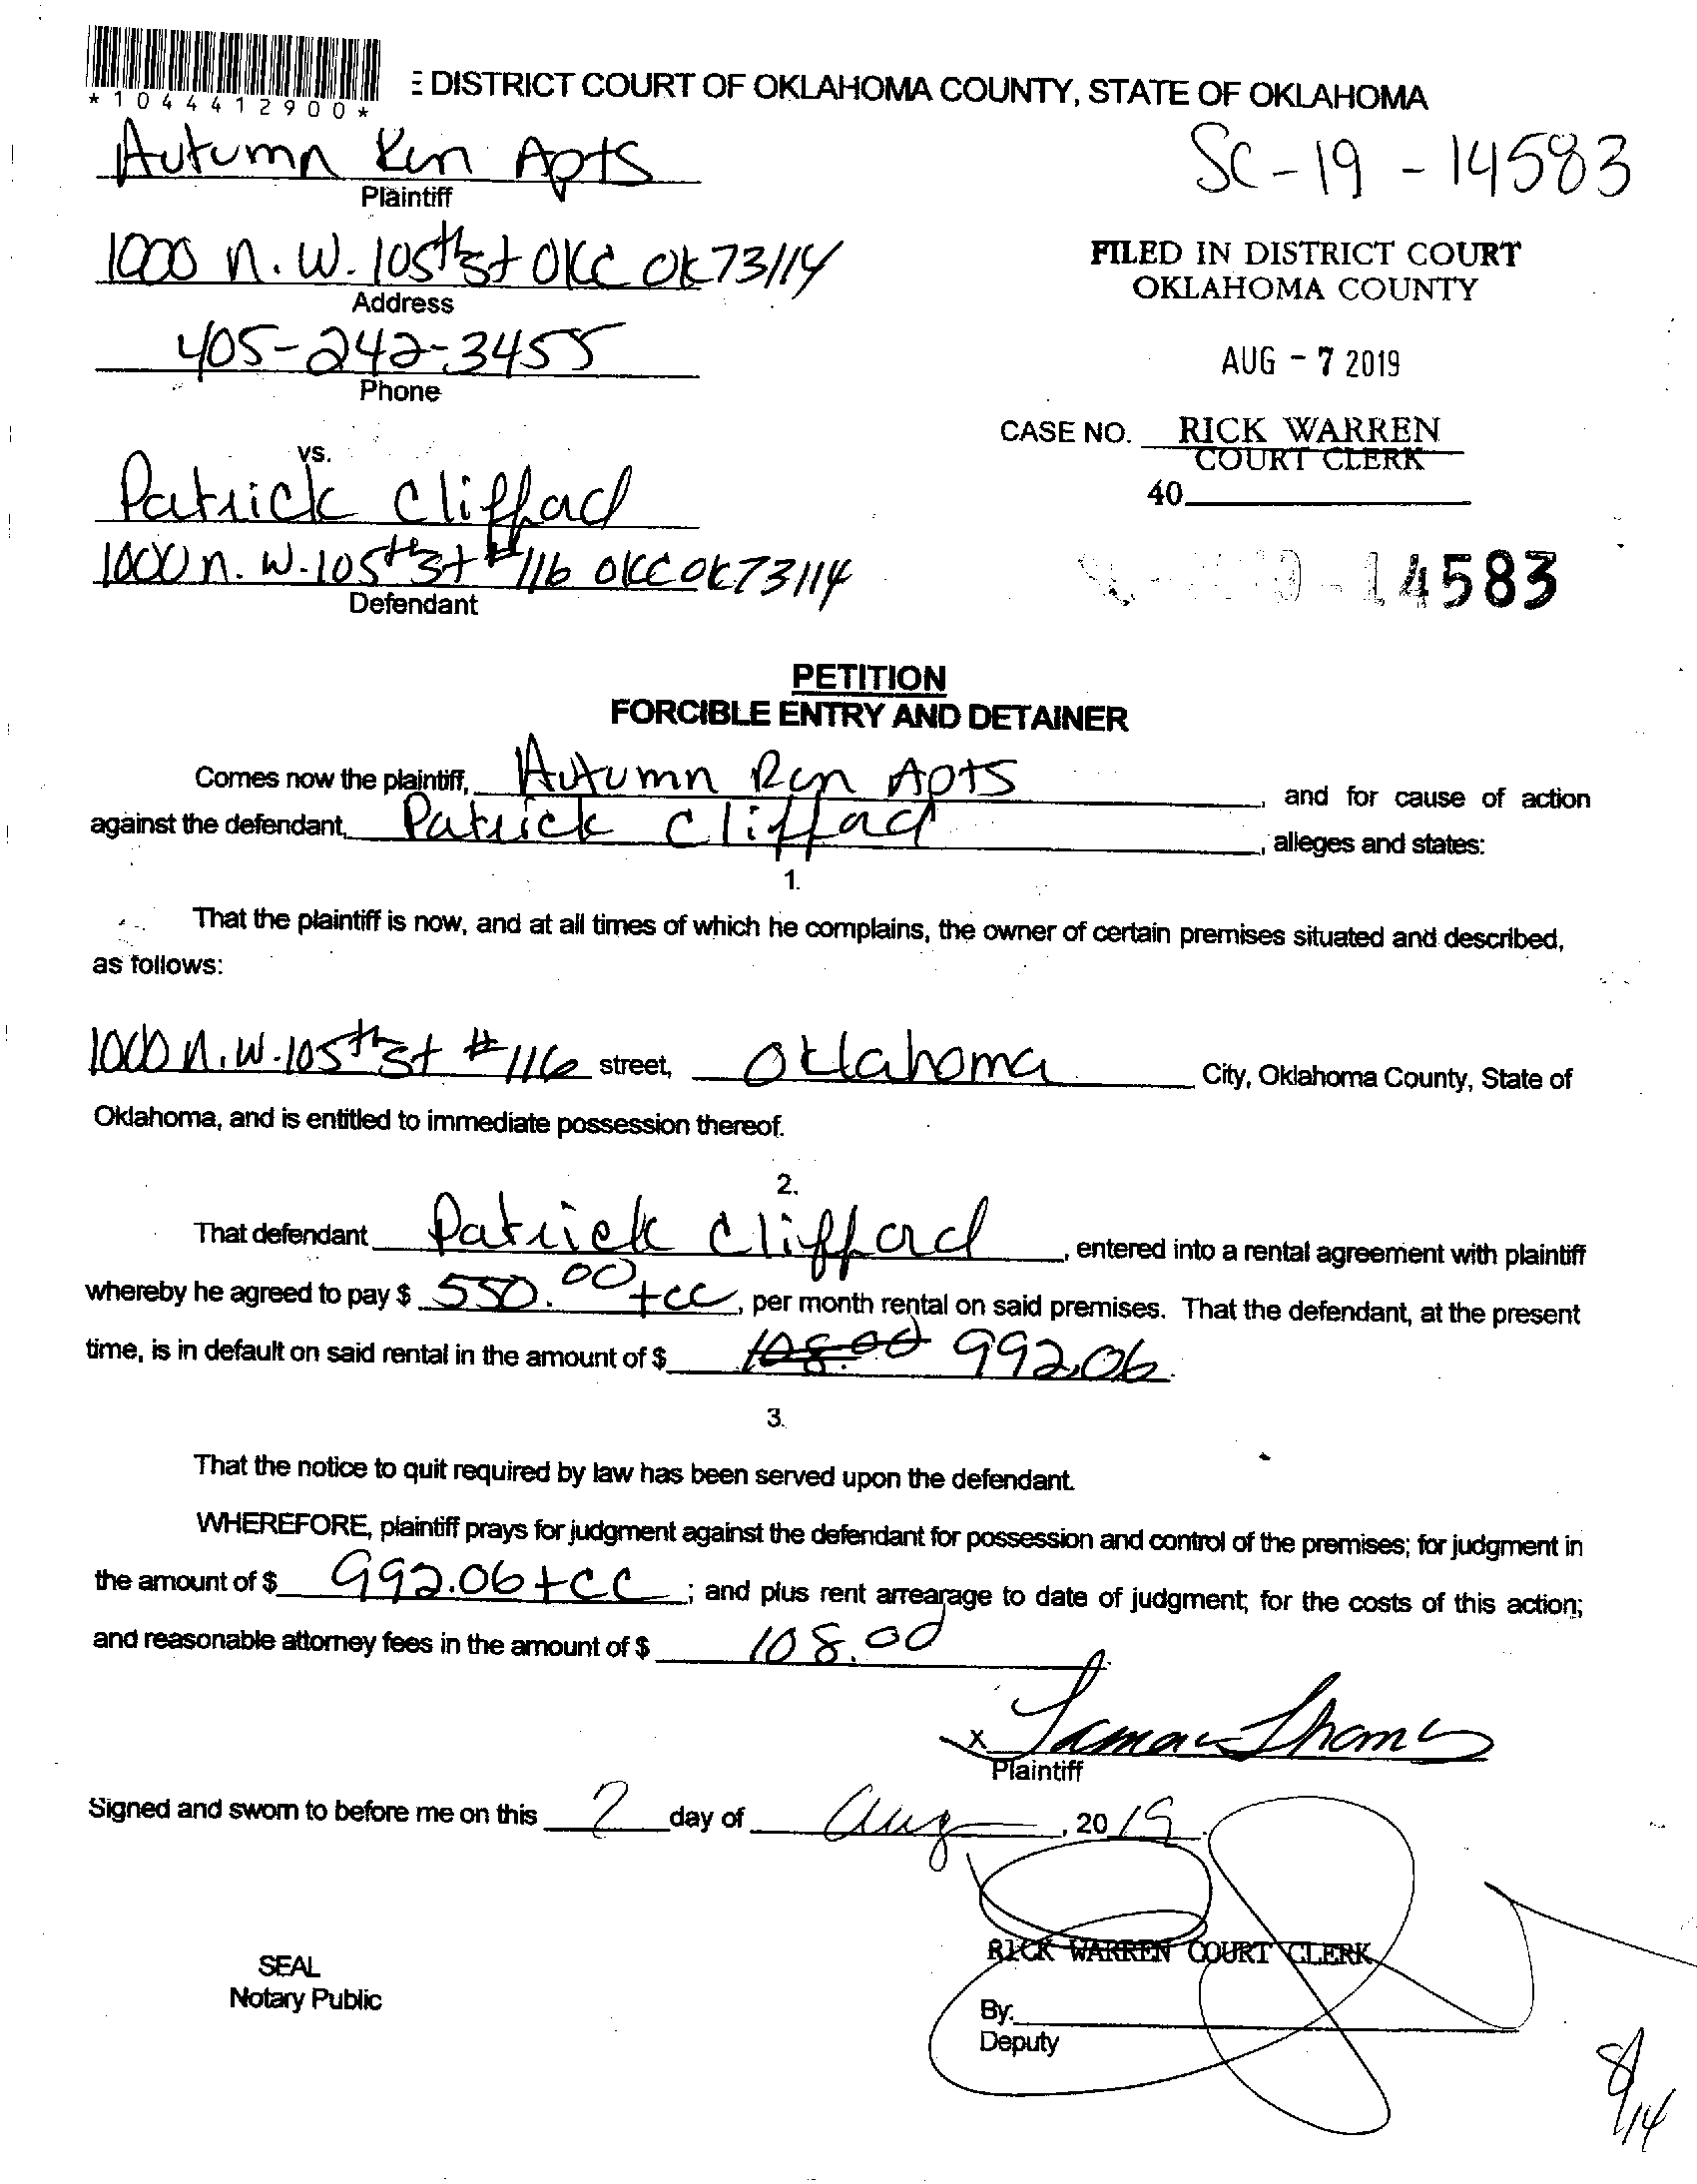 *1044412900*
E DISTRICT COURT OF OKLAHOMA COUNTY, STATE OF OKLAHOMA
Autumn Run Apts
SC-19-14583
Plaintiff
1000 N.W. 105th St OKC OK 73114
FILED IN DISTRICT COURT
OKLAHOMA COUNTY
Address
405-242-3455
AUG - 7 2019
Phone
CASE NO. RICK WARREN
COURT CLERK
vs.
Patrick Clifford
40
1000 N.W. 105th St #116 OKC OK 73114
Defendant
-14583
PETITION
FORCIBLE ENTRY AND DETAINER
Comes now the plaintiff, Autumn Run Apts, and for cause of action
against the defendant, Patrick Clifford, alleges and states:
1.
That the plaintiff is now, and at all times of which he complains, the owner of certain premises situated and described,
as follows:
1000 N.W. 105th St #116 street, Oklahoma City, Oklahoma County, State of
Oklahoma, and is entitled to immediate possession thereof.
2.
That defendant Patrick Clifford, entered into a rental agreement with plaintiff
whereby he agreed to pay $ 550.00 +CC, per month rental on said premises. That the defendant, at the present
time, is in default on said rental in the amount of $ 108.00 992.06.
3.
That the notice to quit required by law has been served upon the defendant.
WHEREFORE, plaintiff prays for judgment against the defendant for possession and control of the premises; for judgment in
the amount of $ 992.06 +CC; and plus rent arrearage to date of judgment; for the costs of this action;
and reasonable attorney fees in the amount of $ 108.00
x
Plaintiff
Signed and sworn to before me on this 7 day of Aug, 2019.
RICK WARREN COURT CLERK
SEAL
Notary Public
By:
Deputy
8/14